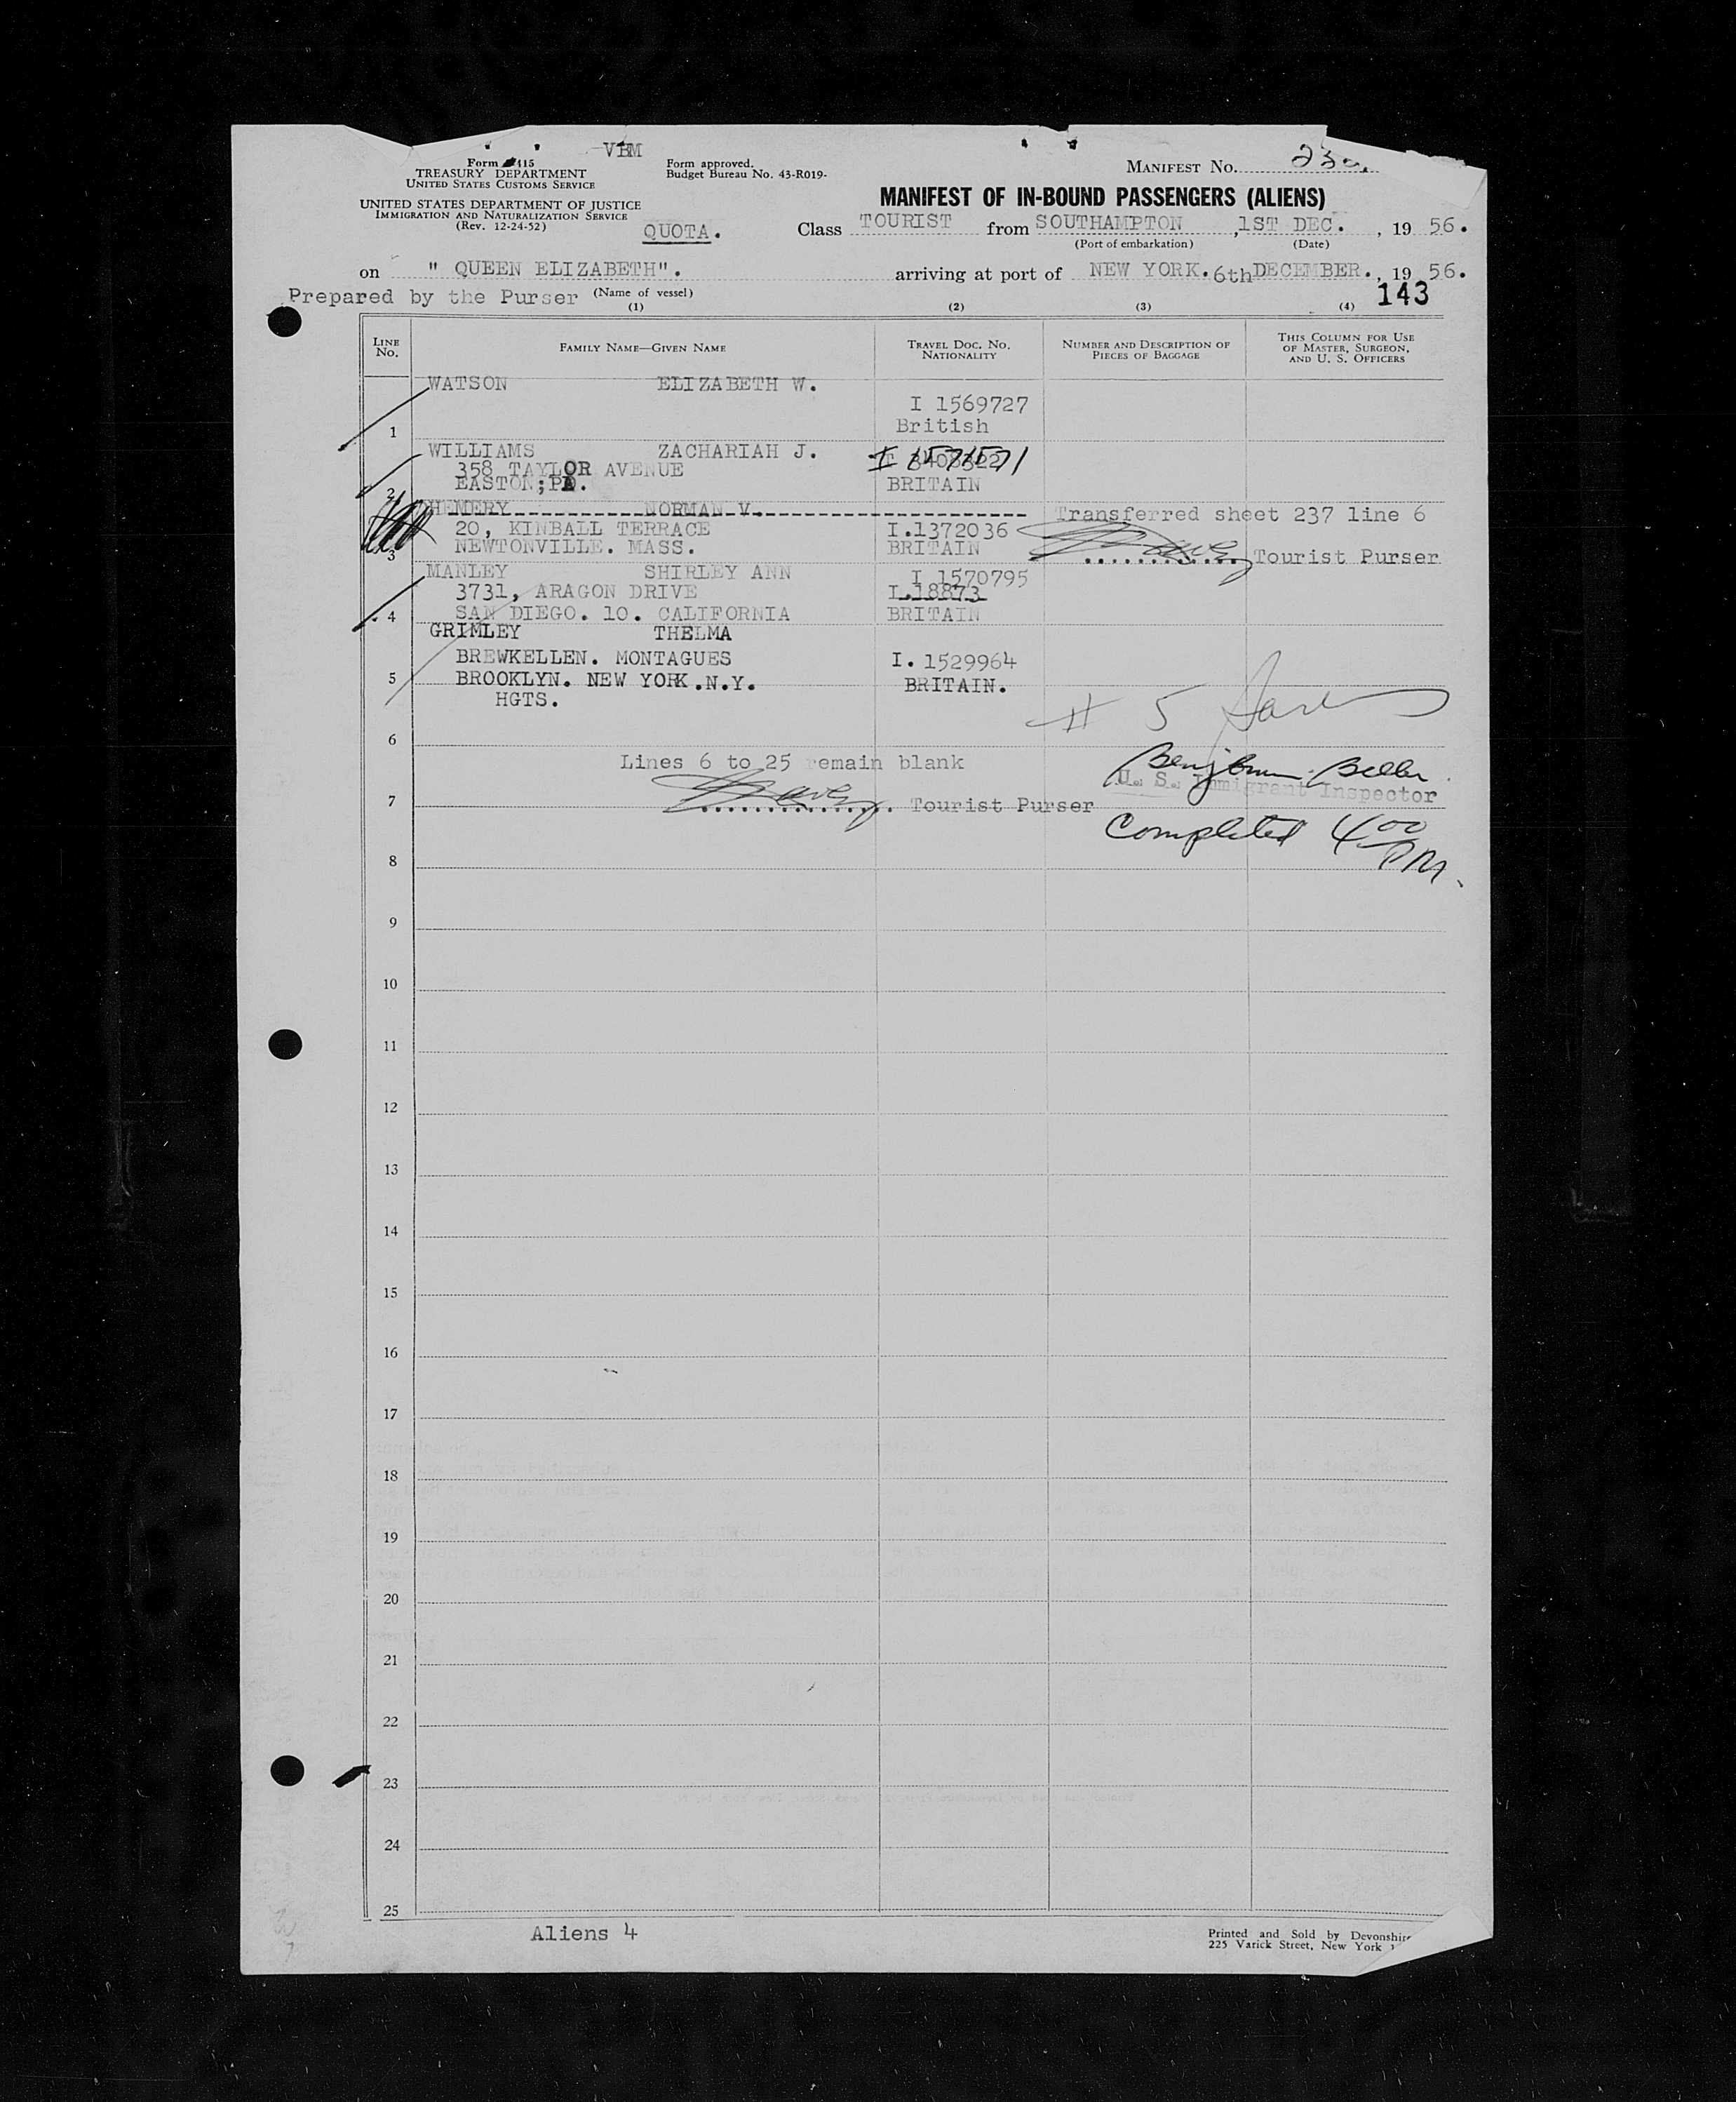 VBM
Form I-415
TREASURY DEPARTMENT
UNITED STATES CUSTOMS SERVICE
UNITED STATES DEPARTMENT OF JUSTICE
IMMIGRATION AND NATURALIZATION SERVICE
(Rev. 12-24-52)
Form approved.
Budget Bureau No. 43-R019-
MANIFEST NO.
MANIFEST OF IN-BOUND PASSENGERS (ALIENS)
QUOTA. Class TOURIST from SOUTHAMPTON, 1ST DEC., 19 56.
(Port of embarkation) (Date)
on " QUEEN ELIZABETH". arriving at port of NEW YORK. 6th DECEMBER., 19 56.
Prepared by the Purser (Name of vessel)
143
(1) (2) (3) (4)
LINE NO.
FAMILY NAME—GIVEN NAME
TRAVEL DOC. NO. NATIONALITY
NUMBER AND DESCRIPTION OF PIECES OF BAGGAGE
THIS COLUMN FOR USE OF MASTER, SURGEON, AND U. S. OFFICERS
WATSON ELIZABETH W.
I 1569727
British
1
WILLIAMS ZACHARIAH J. I 1571571
358 TAYLOR AVENUE
EASTON;PA. BRITAIN
2
HEMERY NORMAN V. Transferred sheet 237 line 6
20, KINBALL TERRACE I.1372036
NEWTONVILLE. MASS. BRITAIN
3 Tourist Purser
MANLEY SHIRLEY ANN I 1570795
3731, ARAGON DRIVE I.18873
SAN DIEGO. 10. CALIFORNIA BRITAIN
4
GRIMLEY THELMA
BREWKELLEN. MONTAGUES I. 1529964
5 BROOKLYN. NEW YORK.N.Y. BRITAIN.
HGTS.
# 5
6
Lines 6 to 25 remain blank
Benjamin Beller
U. S. Immigrant Inspector
7 Tourist Purser
Completed 4 00 PM.
8
9
10
11
12
13
14
15
16
17
18
19
20
21
22
23
24
25
Aliens 4
Printed and Sold by Devonshire
225 Varick Street, New York 1